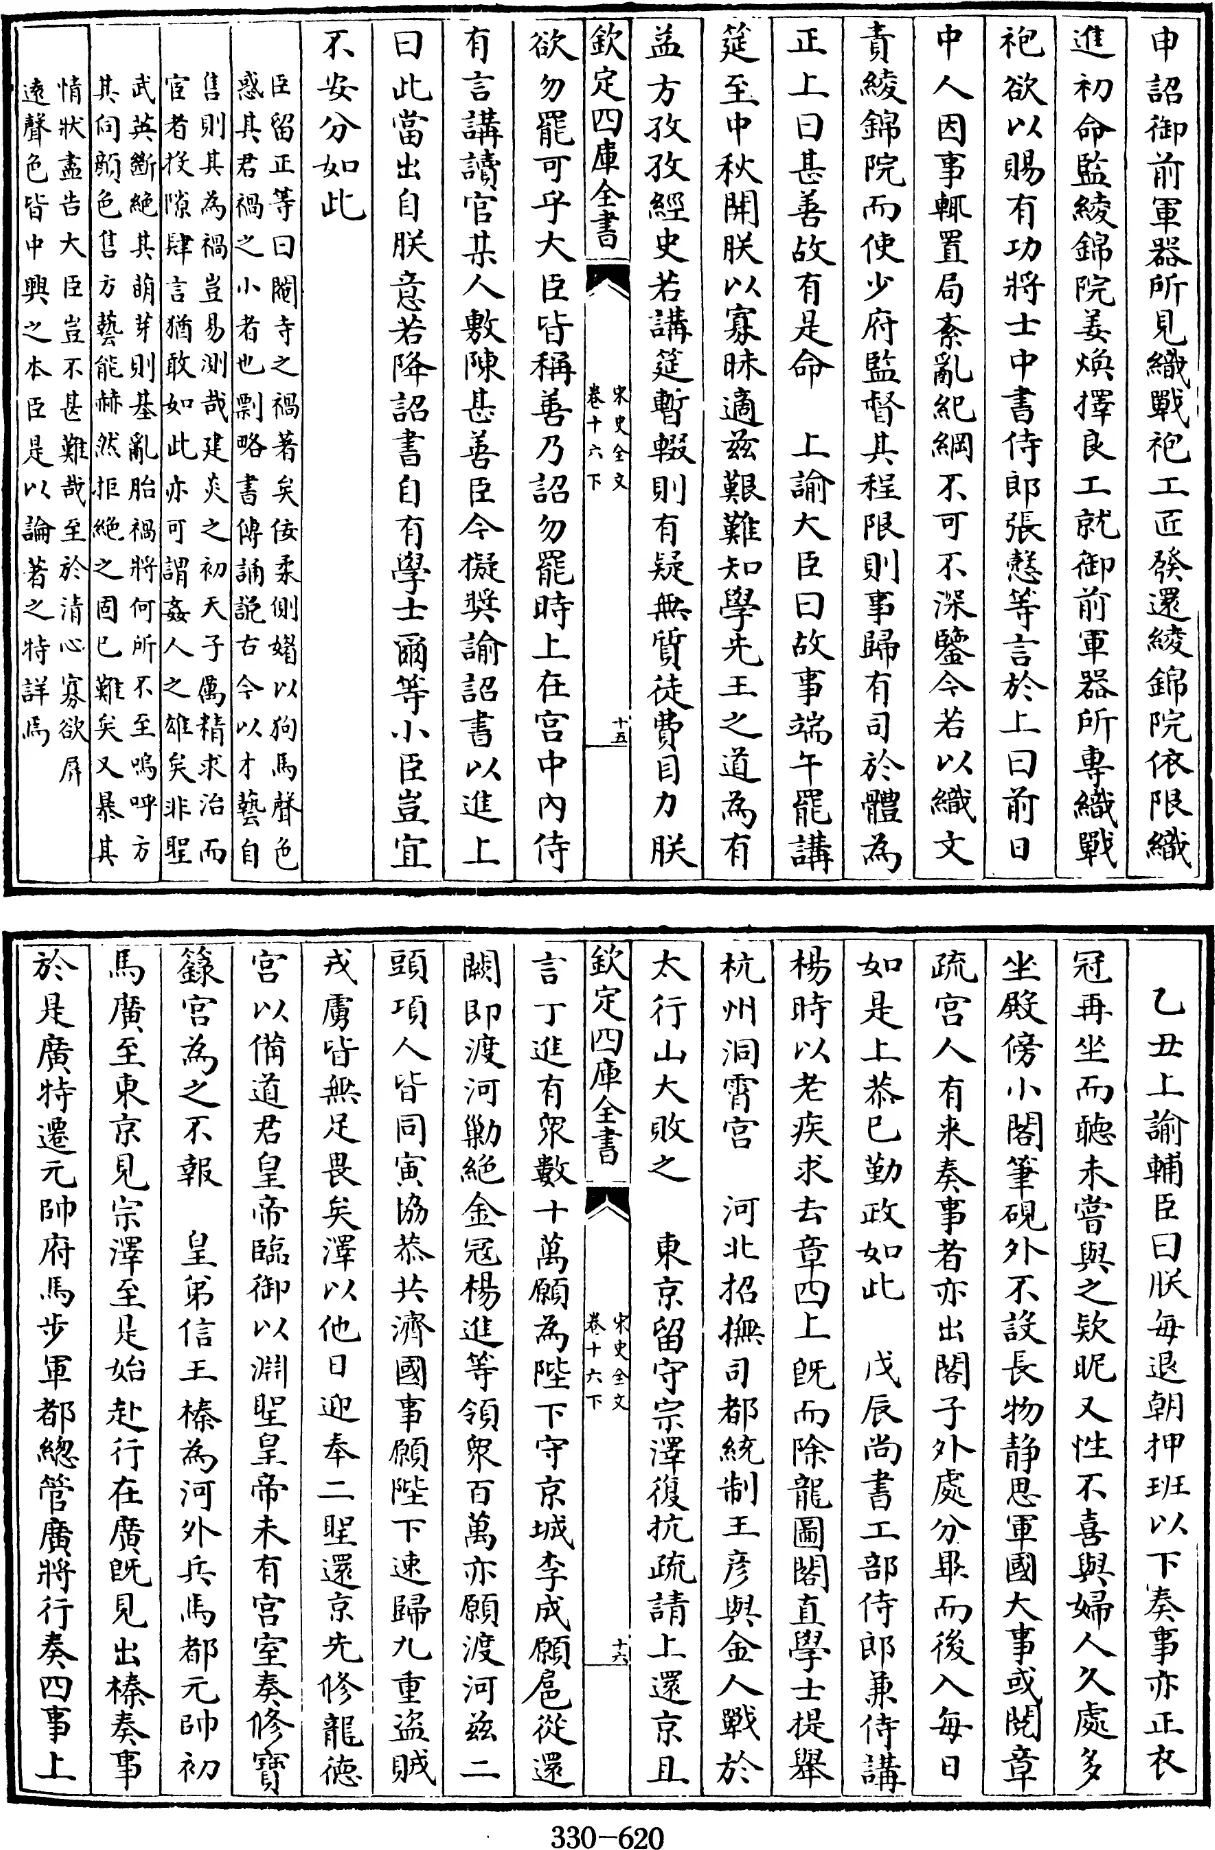 申詔御前軍器所見織戰袍工匠發還綾錦院依限織
進初命監綾錦院姜煥擇良工就御前軍器所專織戰
袍欲以賜有功將士中書侍郎張慤等言於上曰前日
中人因事輒置局紊亂紀綱不可不深鑒今若以織文
責綾錦院而使少府監督其程限則事歸有司於體為
正上曰甚善故有是命　上諭大臣曰故事端午罷講
筵至中秋開朕以寡昧適兹艱難知學先王之道為有
益方孜孜經史若講筵暫輟則有疑無質徒費目力朕
欽定四庫全書
宋史全文
卷十六下
十五
欲勿罷可乎大臣皆稱善乃詔勿罷時上在宫中内侍
有言講讀官某人敷陳甚善臣今擬奬諭詔書以進上
曰此當出自朕意若降詔書自有學士爾等小臣豈宜
不安分如此
臣留正等曰閹寺之禍著矣佞柔側媚以狗馬聲色
惑其君禍之小者也剽略書傳誦說古今以才藝自
售則其為禍豈易測哉建炎之初天子厲精求治而
宦者投隙肆言猶敢如此亦可謂姦人之雄矣非聖
武英斷絶其萌芽則基亂胎禍將何所不至嗚呼方
其伺顔色售方藝能赫然拒絶之固已難矣又暴其
情狀盡告大臣豈不甚難哉至於清心寡欲屏
逺聲色皆中興之本臣是以論著之特詳焉
乙丑上諭輔臣曰朕每退朝押班以下奏事亦正衣
冠再坐而聽未嘗與之欵昵又性不喜與婦人久處多
坐殿傍小閣筆硯外不設長物静思軍國大事或閲章
疏宫人有来奏事者亦出閣子外處分畢而後入每日
如是上恭已勤政如此　戊辰尚書工部侍郎兼侍講
楊時以老疾求去章四上既而除龍圖閣直學士提舉
杭州洞霄宫　河北招撫司都統制王彦與金人戰於
太行山大敗之　東京留守宗澤復抗疏請上還京且
欽定四庫全書
宋史全文
卷十六下
十六
言丁進有衆數十萬願為陛下守京城李成願扈從還
闕即渡河勦絶金冦楊進等領衆百萬亦願渡河兹二
頭項人皆同寅協恭共濟國事願陛下速歸九重盗賊
戎虜皆無足畏矣澤以他日迎奉二聖還京先修龍德
宫以備道君皇帝臨御以淵聖皇帝未有宫室奏修寳
籙宫為之不報　皇弟信王榛為河外兵馬都元帥初
馬廣至東京見宗澤至是始赴行在廣既見出榛奏事
於是廣特遷元帥府馬步軍都總管廣將行奏四事上
330-620